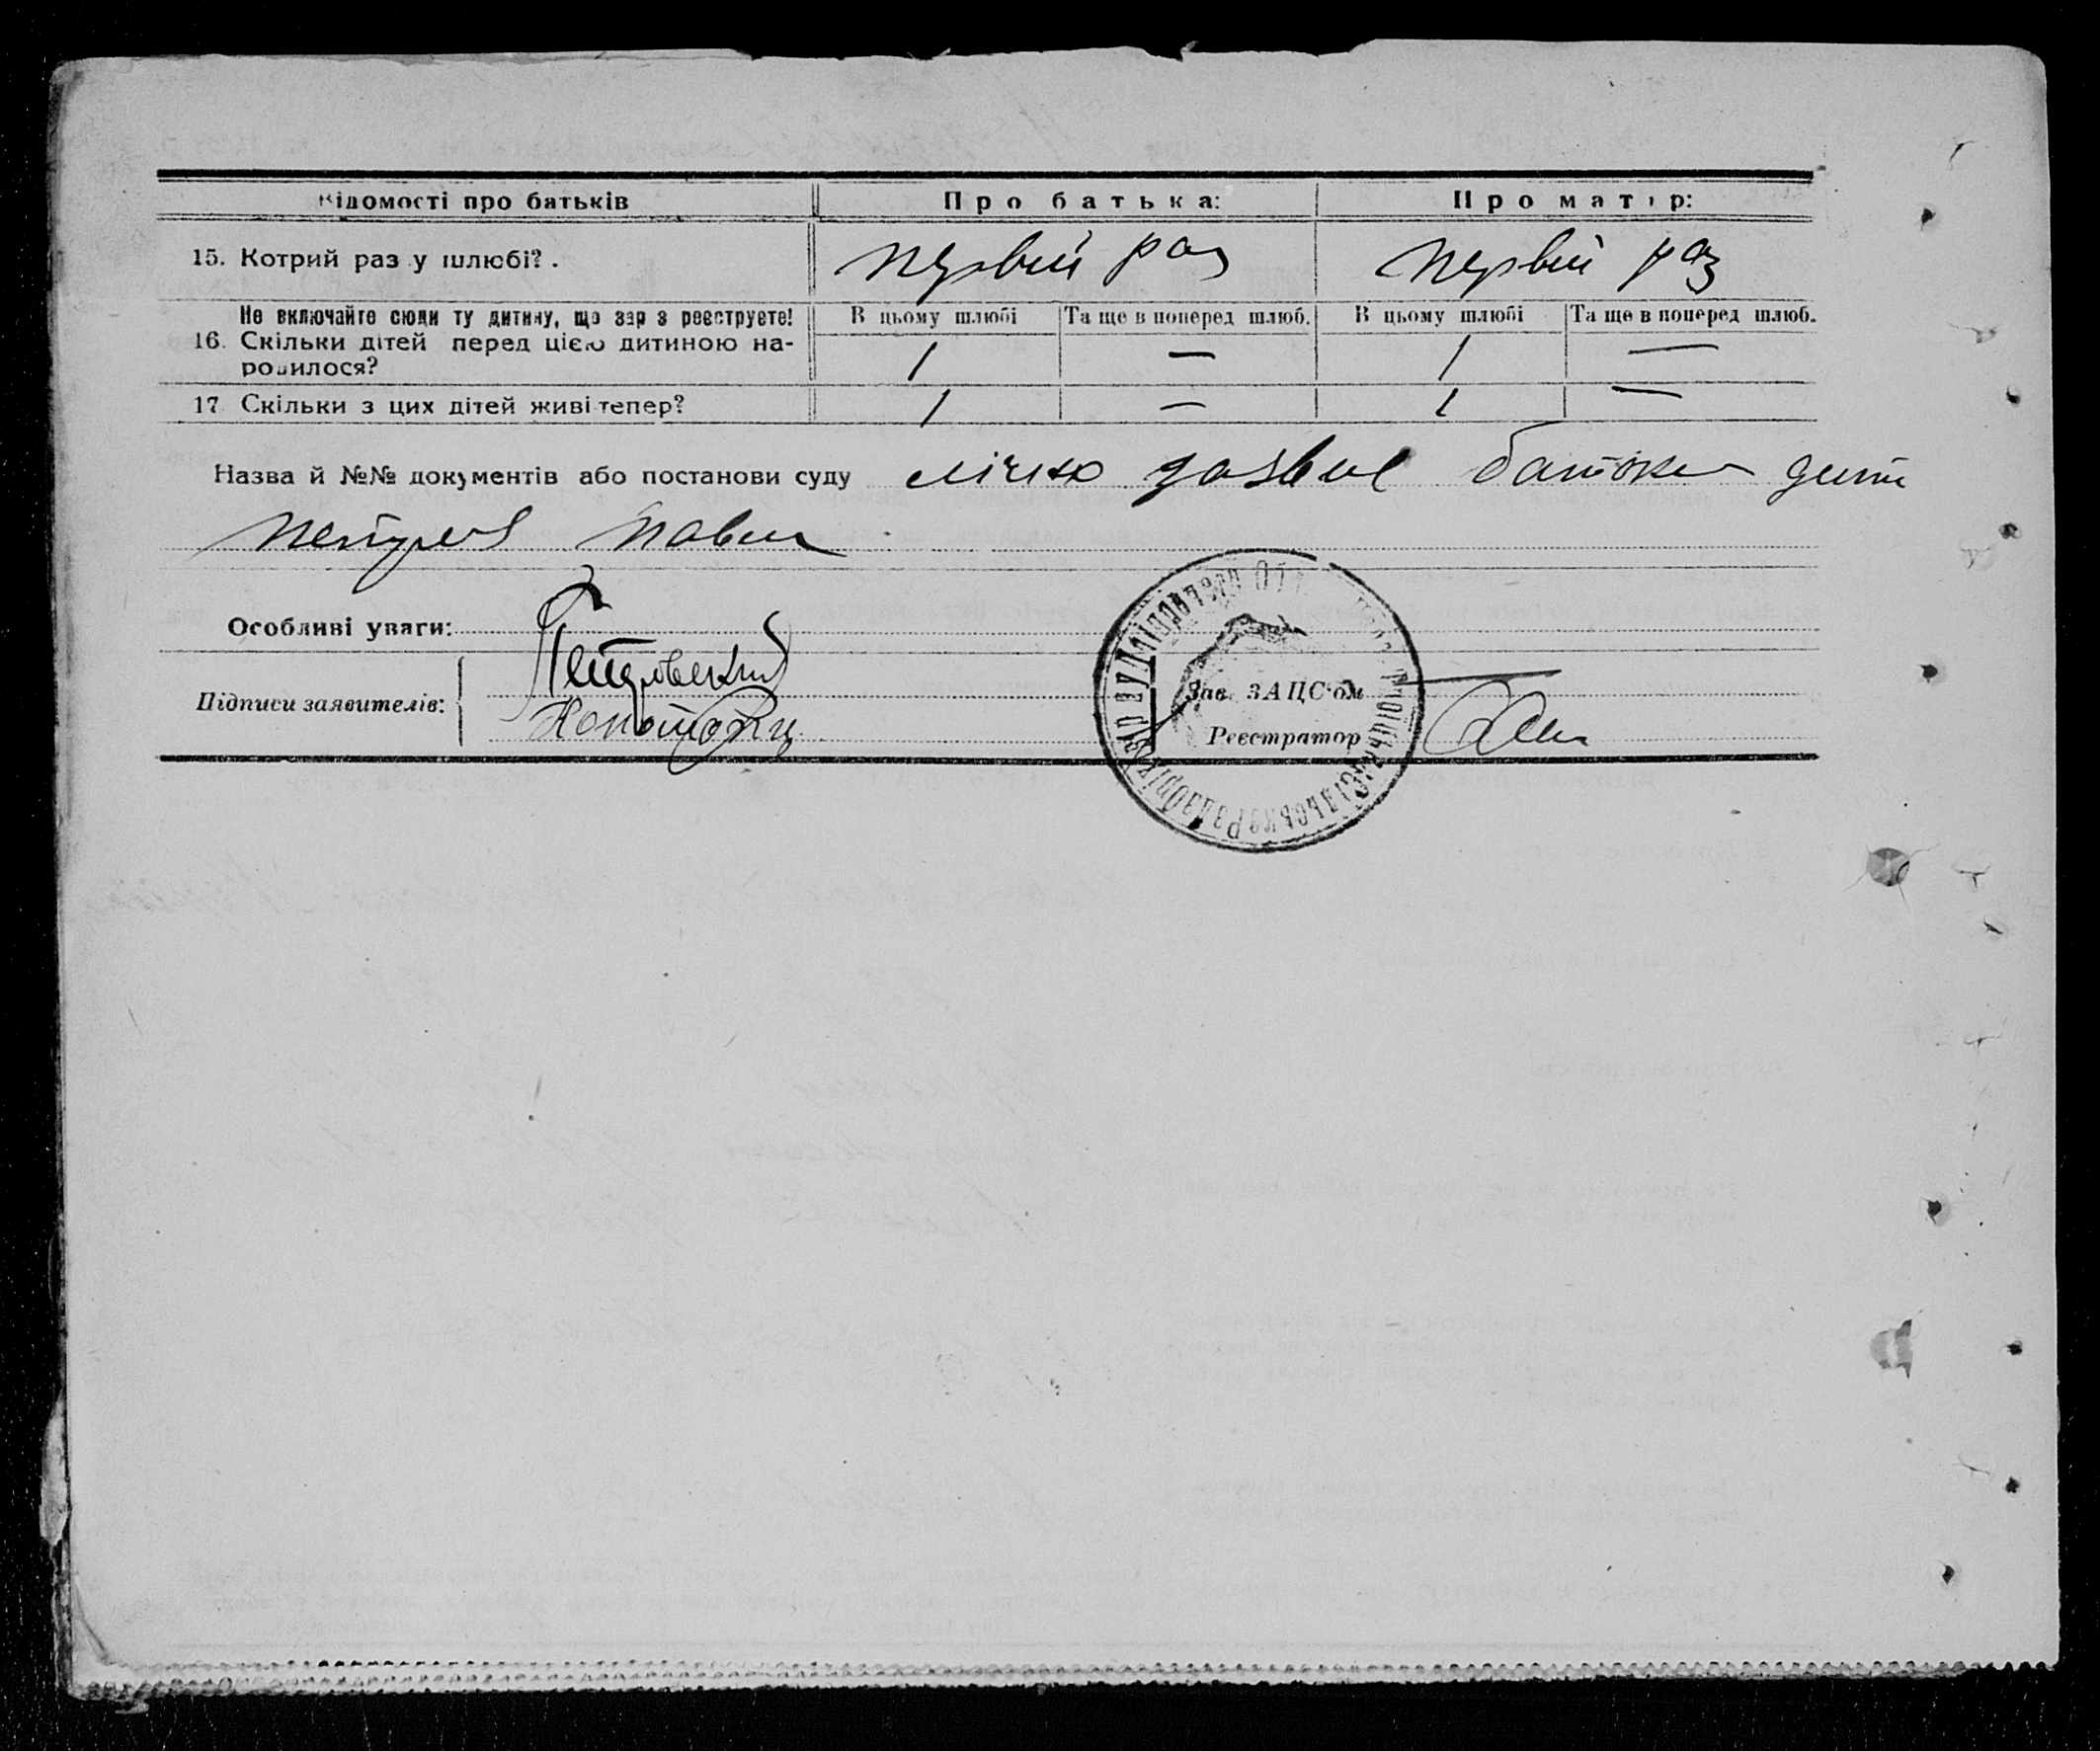 Відомості про батьків Про батька: Про матір:
15. Котрий раз у шлюбі? . первий раз первий раз
Не включайте сюди ту дитину, що зар з реєструєте! В цьому шлюбі Та ще в поперед шлюб. В цьому шлюбі Та ще в поперед шлюб.
16. Скільки дітей перед цією дитиною на-
родилося? 1 — 1 —
17. Скільки з цих дітей живі тепер? 1 — 1 —
Назва й №№ документів або постанови суду лічно батька
Особливі уваги:
Підписи заявителів: Петровский
Зав. ЗАЦС'ом
Реєстратор